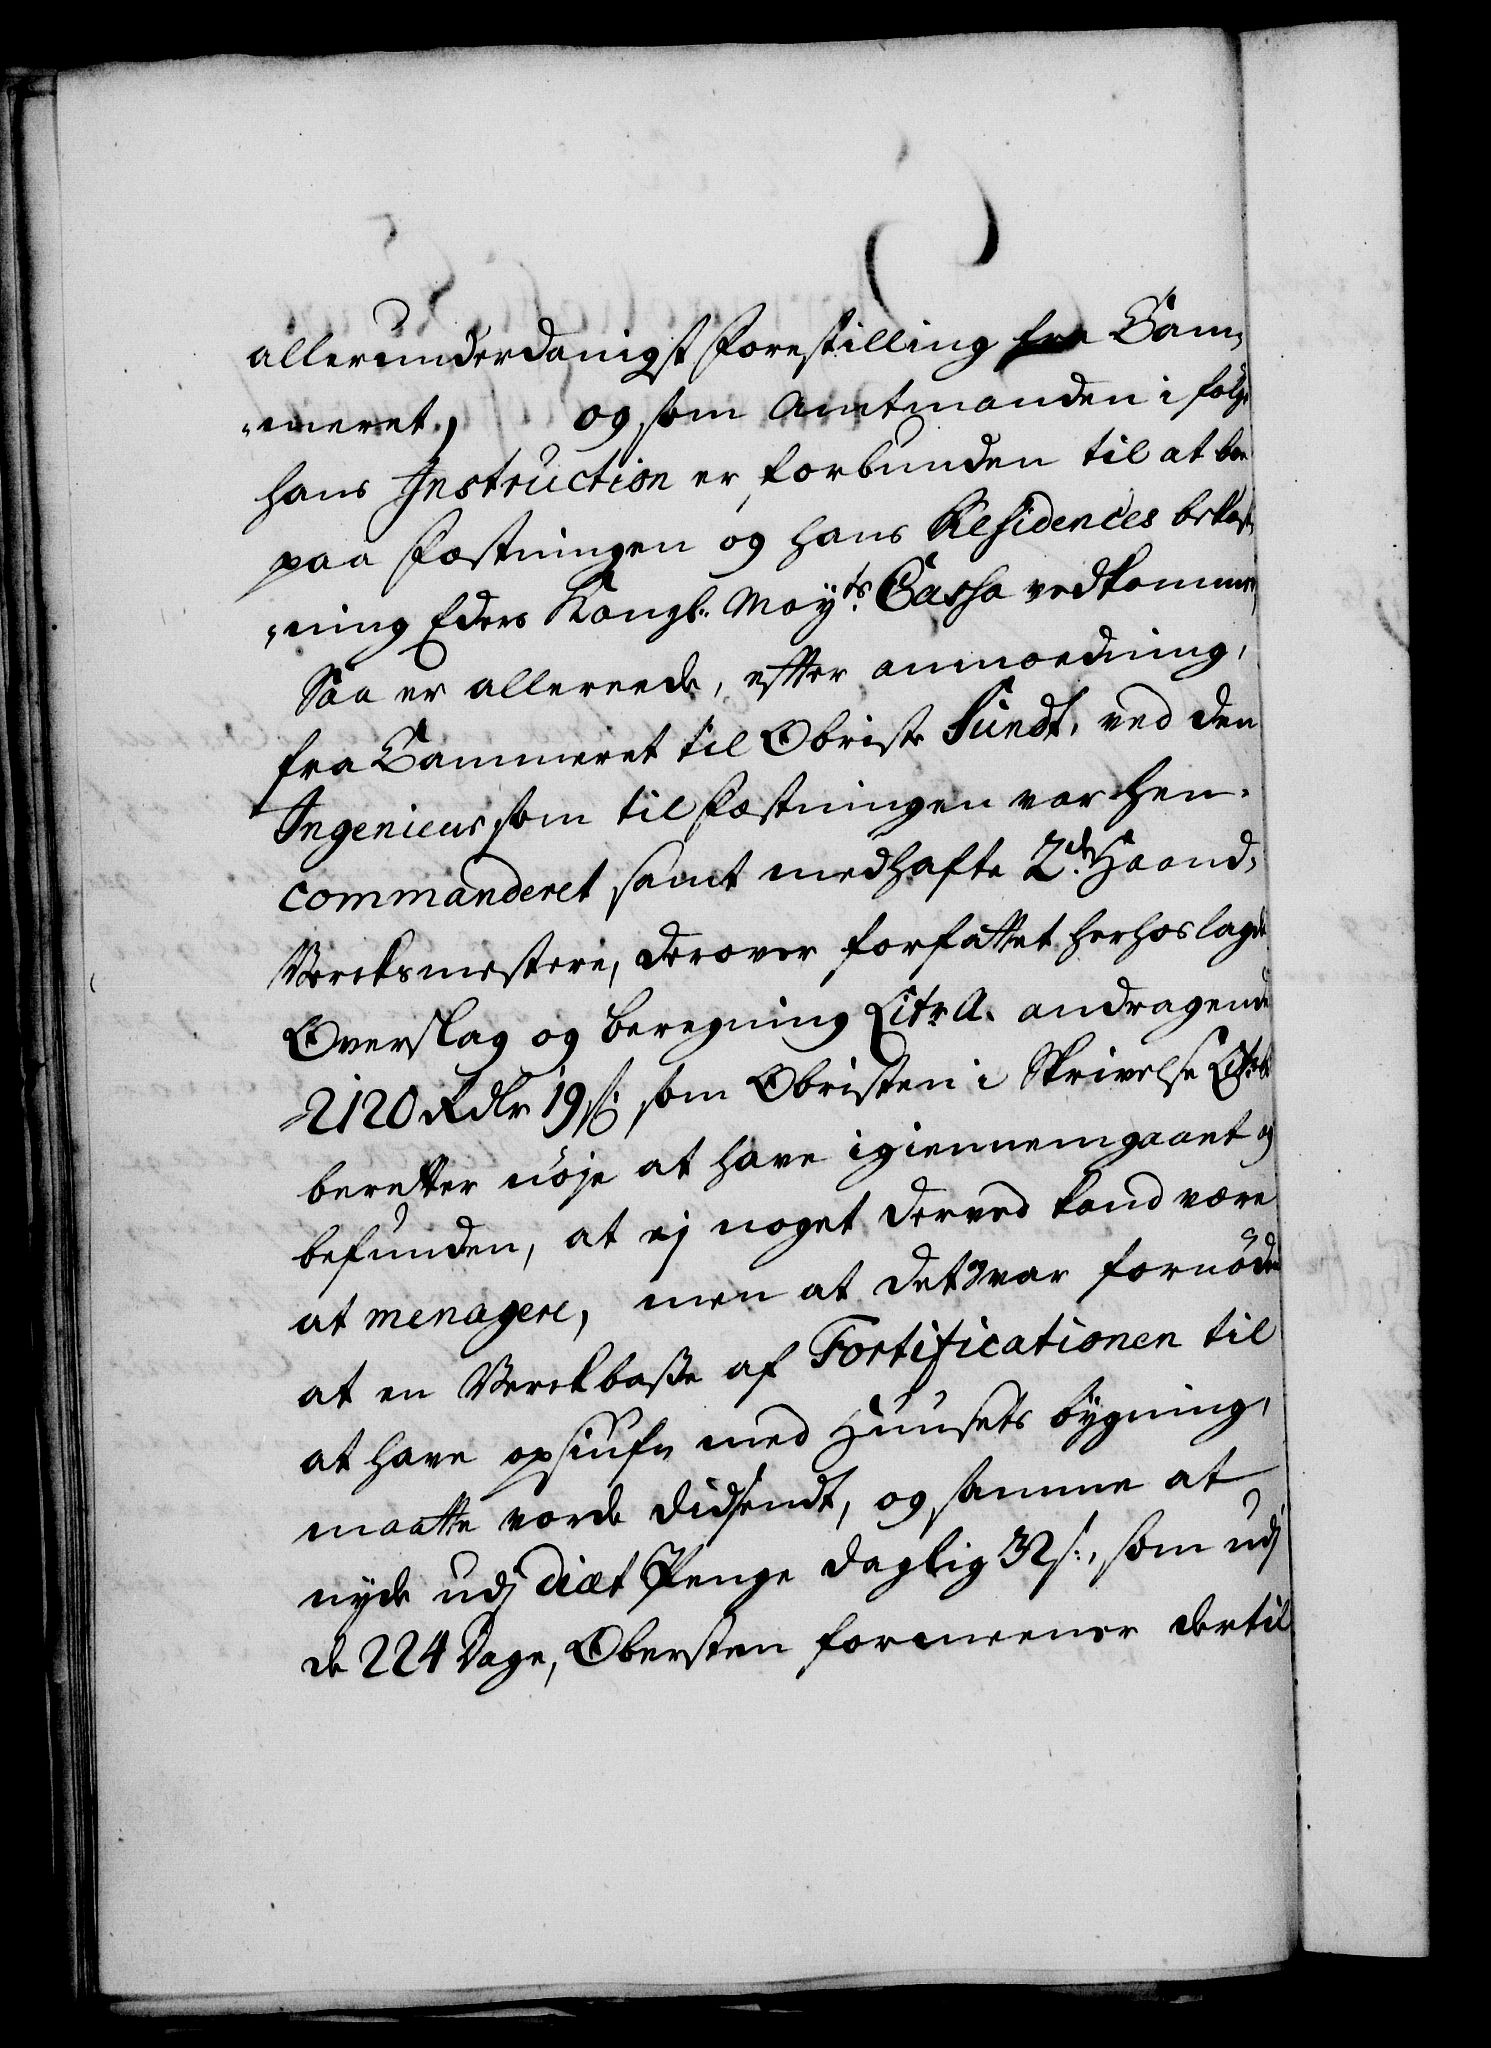 allerunderdanigst forestilling fra Cam„
„meret, og som Amtmanden i følge
hans Instruction er forbunden til at boe
paa Fæstningen og hans Residences bekost„
„ning Eders Kongl: May:ts Cassa vedkommer,
Saa er allereede, efter anmodning,
fra Cammeret til Obriste Sundt, ved den
Ingenieur som til Fæstningen var hen„
commanderet samt medhafte 2:de Haand„
Verksmestere, derover forfattet herhoslagde
Overslag og beregning Litr: A. andragende
2120 Rdlr 19 s: som Obristen i Skrivelse Litr: B
beretter nøje at have igiennemgaaet og
befunden, at ej noget derved kand være
at menagere, men at det var fornøden
at en Verckbasse af Fortificationen til
at have opsiufn med Huusets bygning,
maatte vorde didsendt, og samme at
nyde udj diæt Penge daglig 32 s:, som udj
de 224 Dage, Obersten formeener dertil